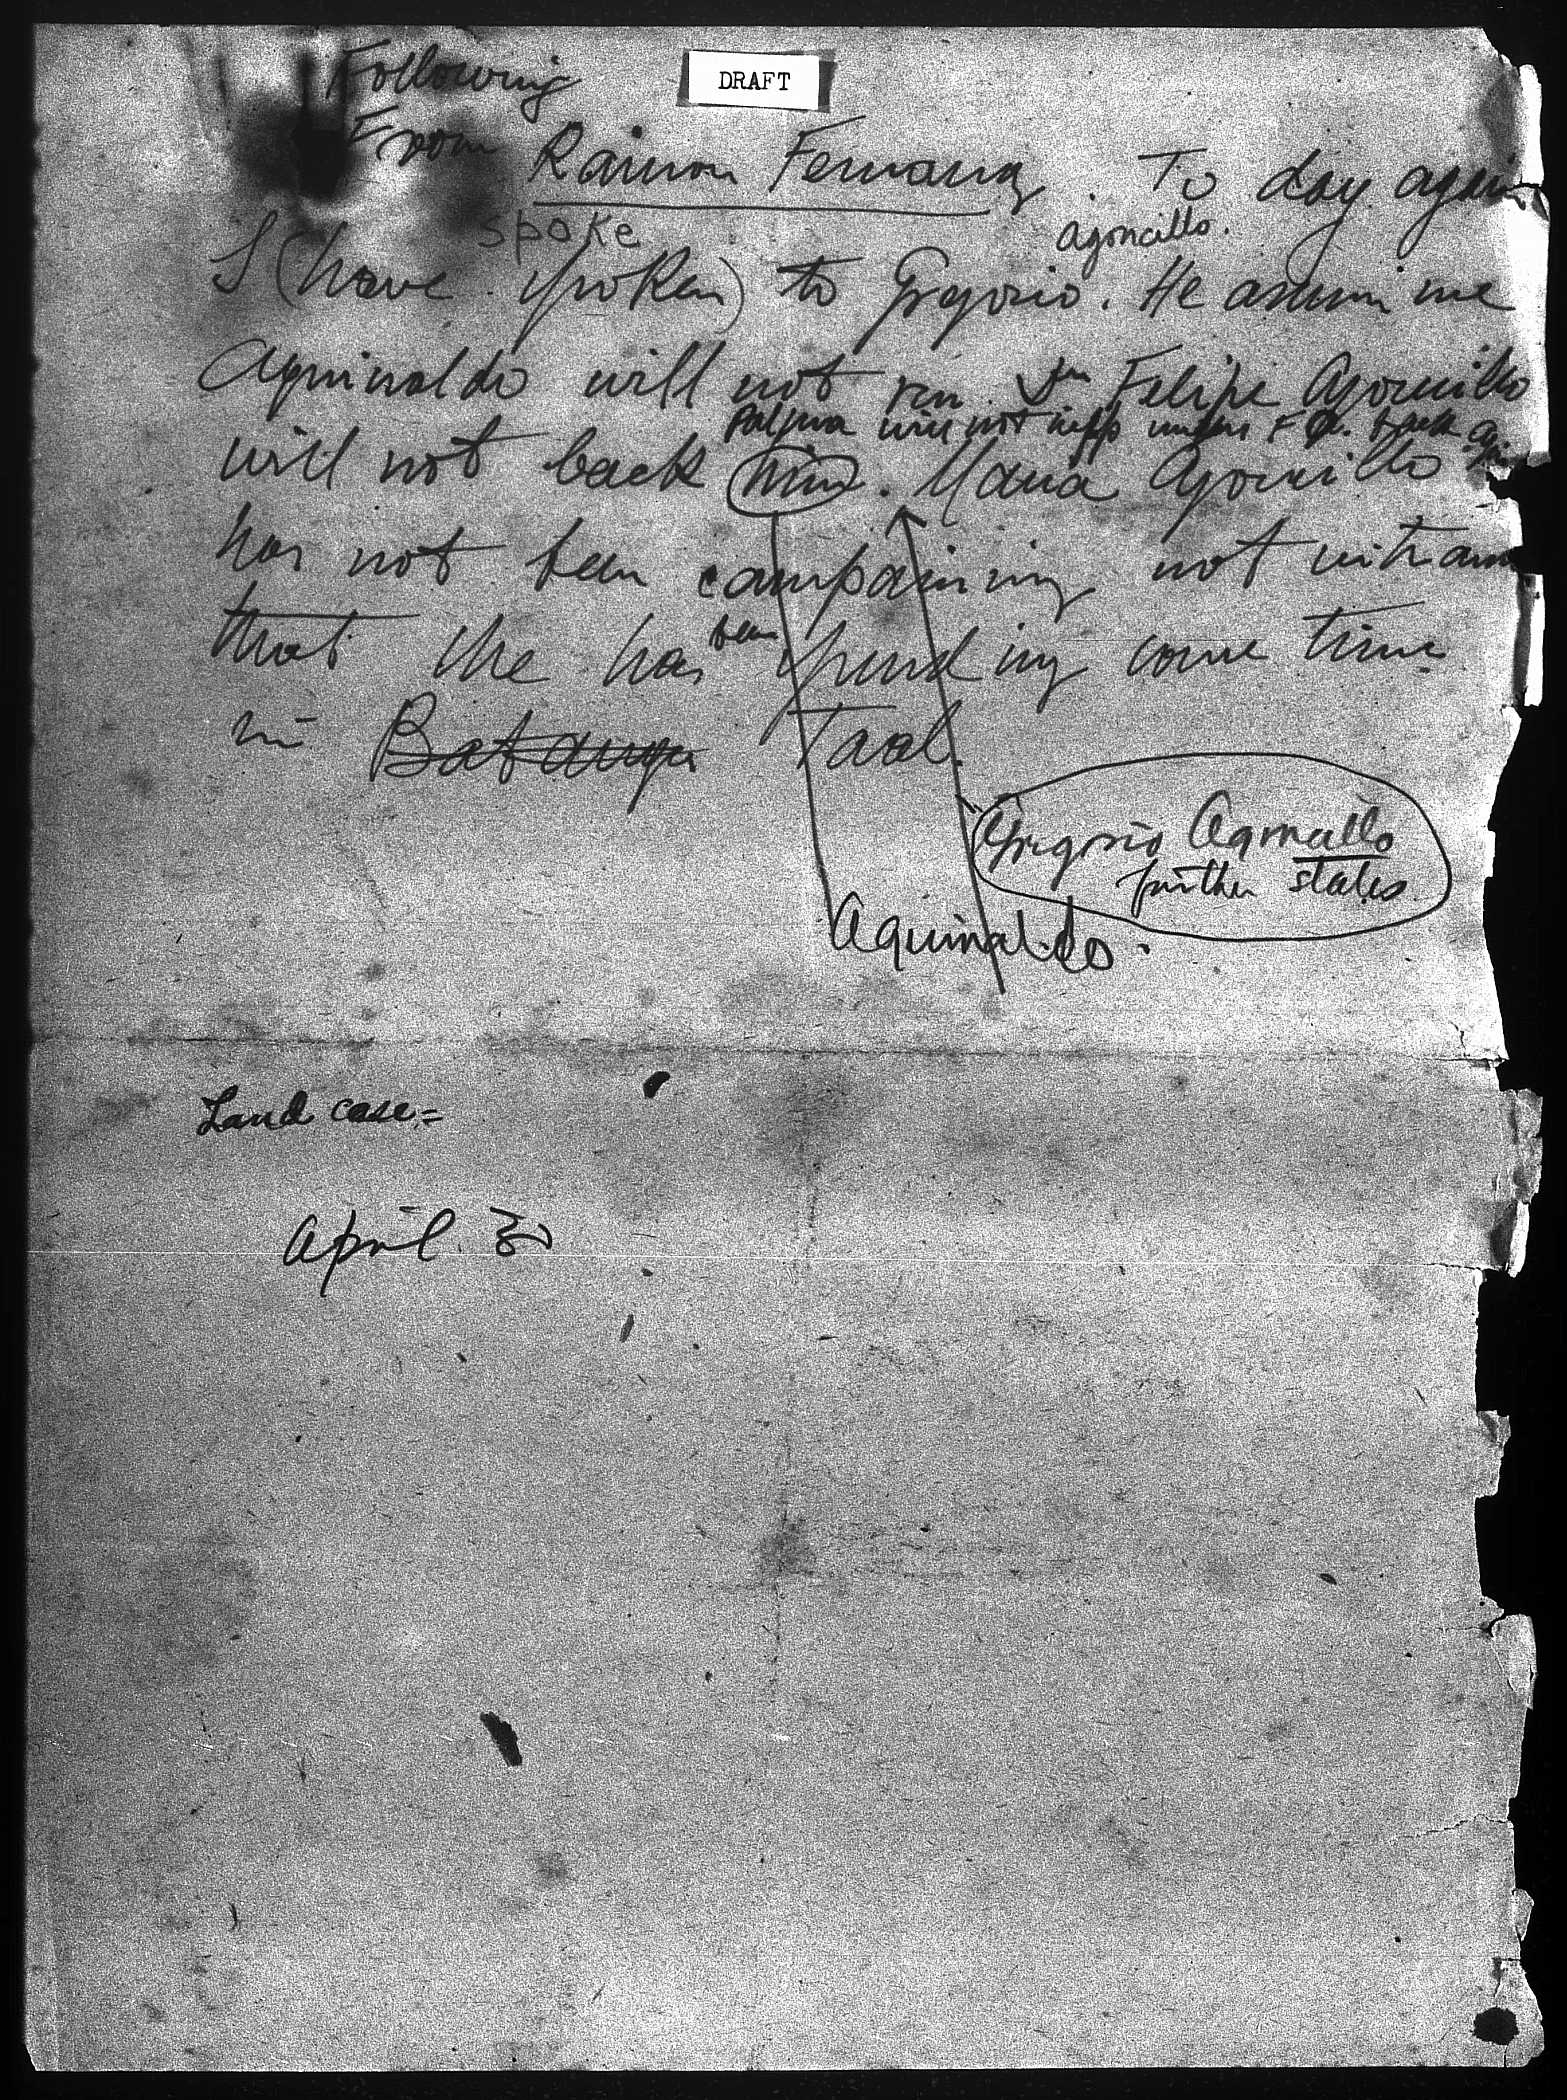 DRAFT
Following
From Ramon Fernandez. To day again
spoke Agoncillo.
I (have spoken) to Gregorio. He assures me
Aguinaldo will not run. Felipe Agoncillo
will not
will not back him. Maria Agoncillo
has not been campaining not withstan
that she has been spending some time
in Batangas Taal.
Gregorio Agoncillo
further states
Aguinaldo.
Land case =
April 30